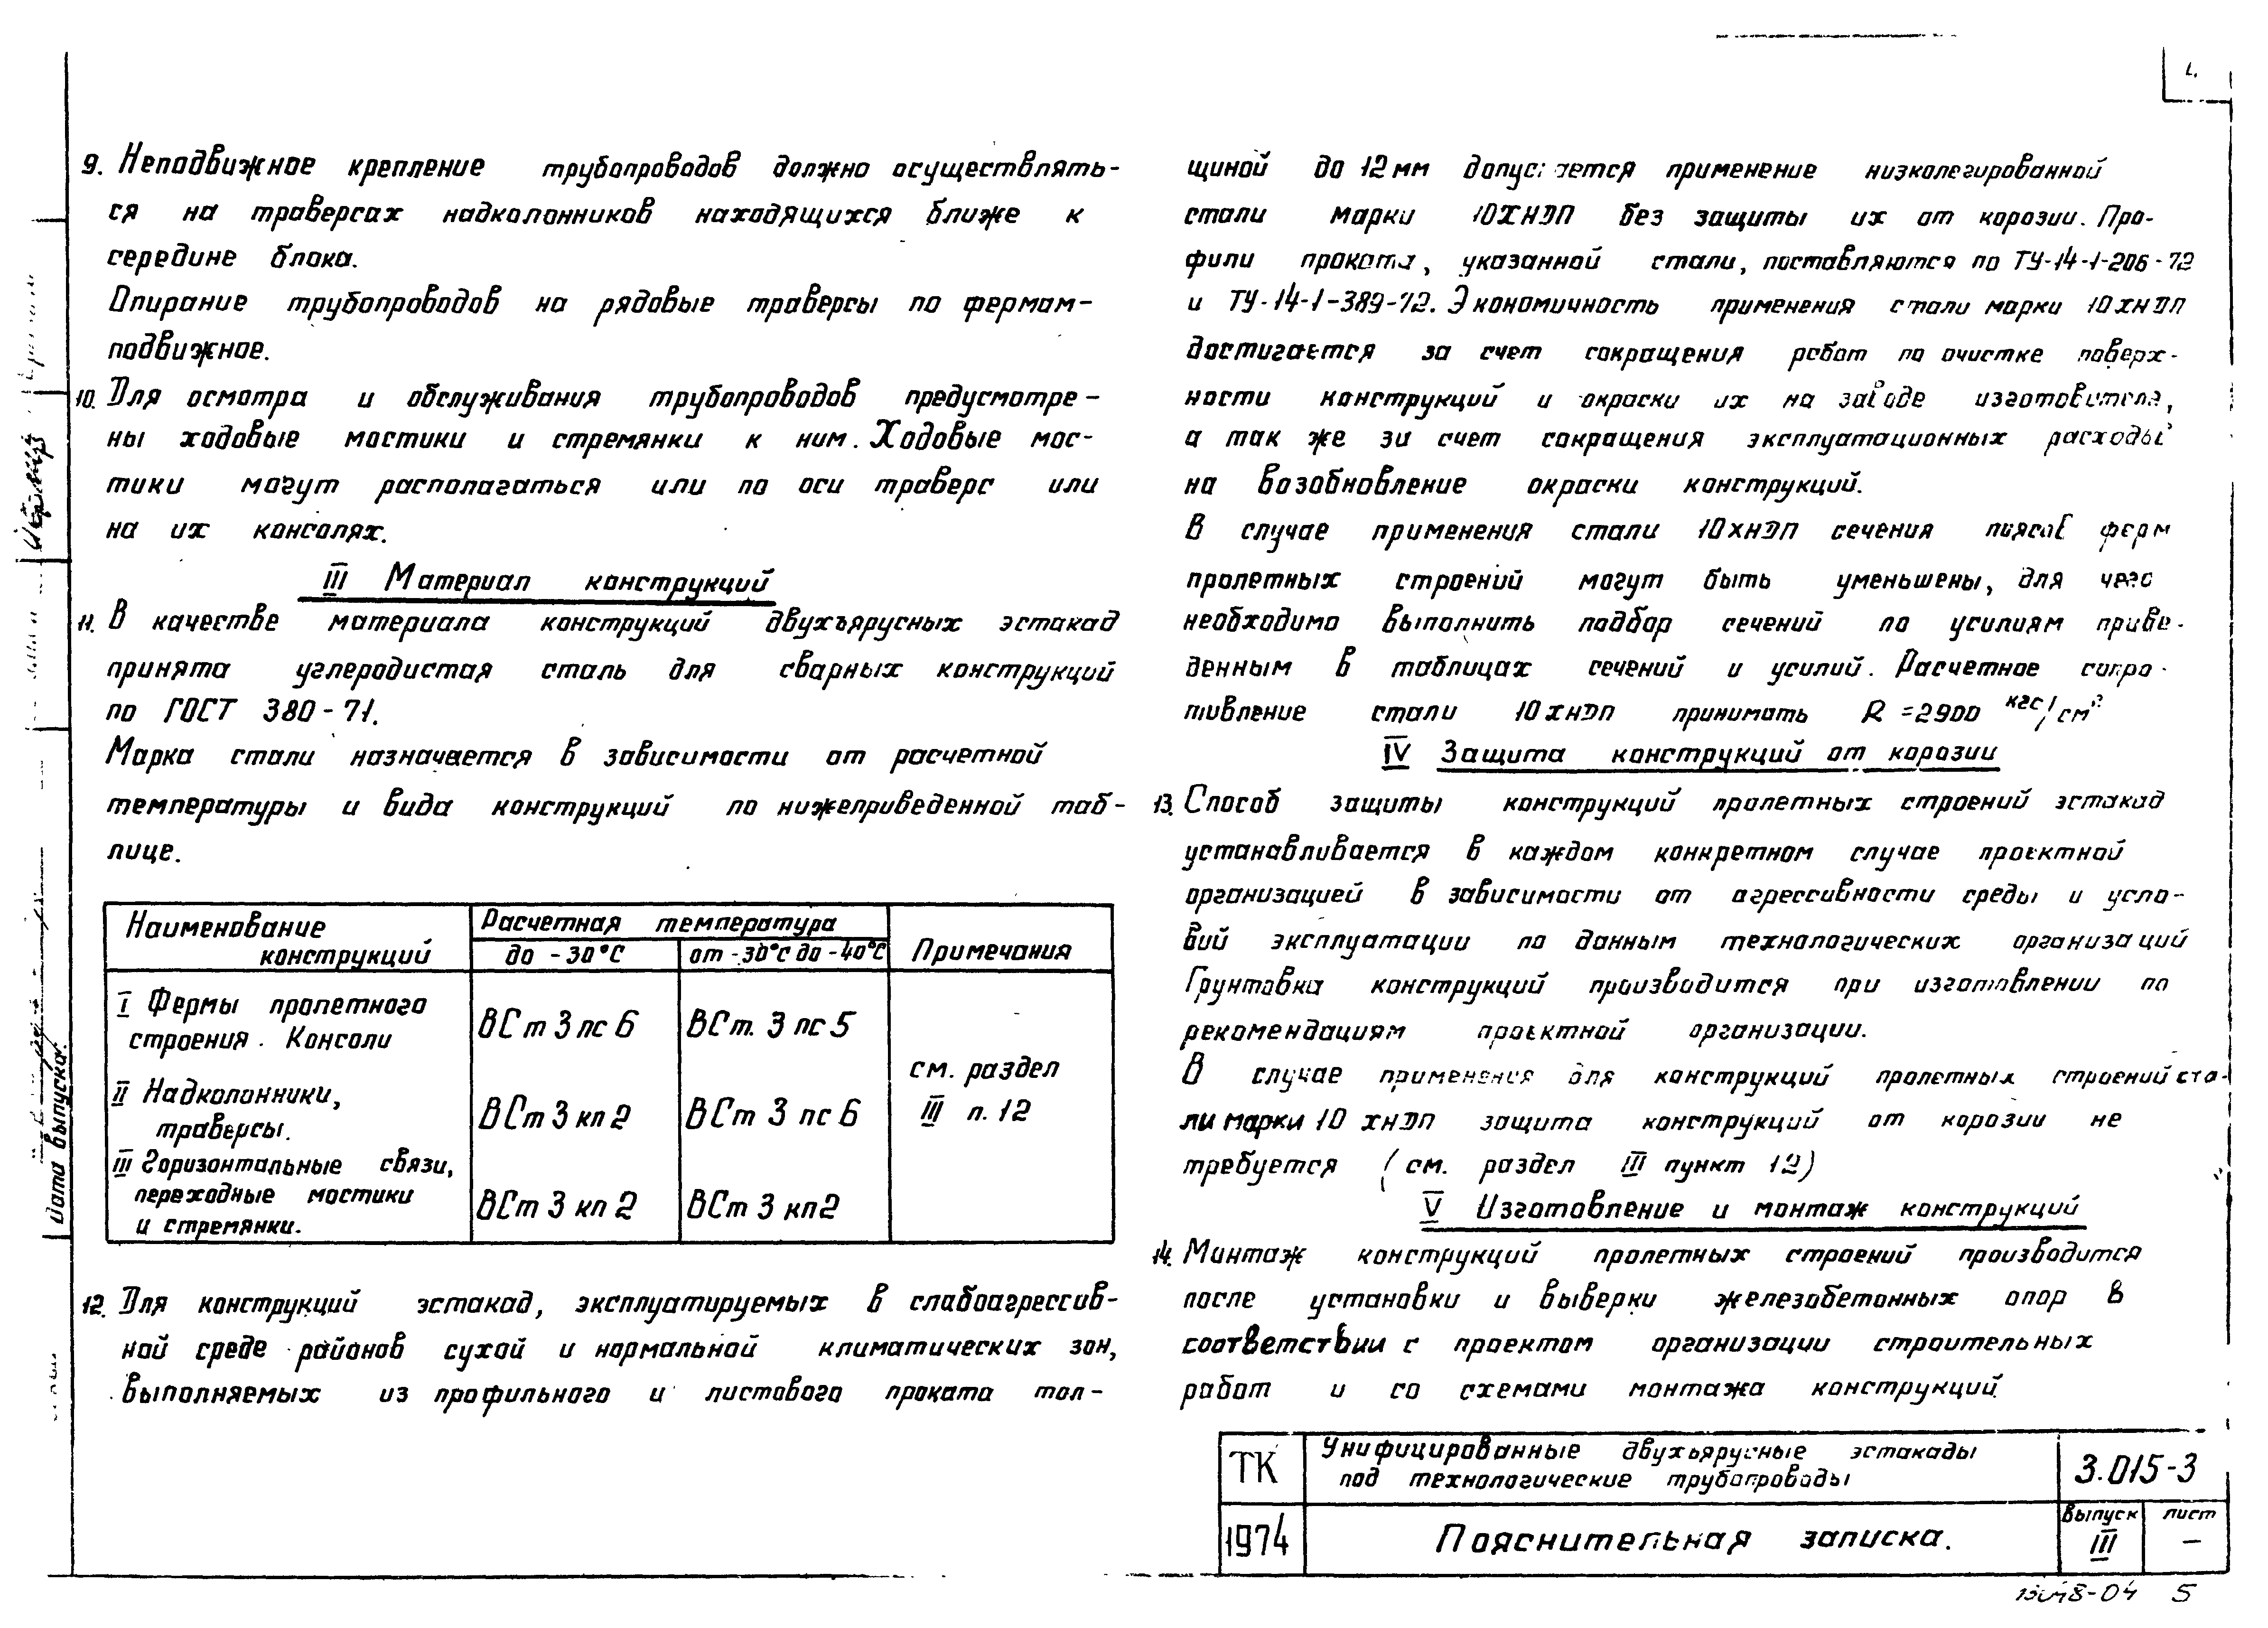 9. Неподвижное крепление трубопроводов должно осуществлять-
ся на траверсах надколонников находящихся ближе к
середине блока.
Опирание трубопроводов на рядовые траверсы по фермам-
подвижное.
10. Для осмотра и обслуживания трубопроводов предусмотре-
ны ходовые мостики и стремянки к ним. Ходовые мос-
тики могут располагаться или по оси траверс или
на их консолях.
III Материал конструкций
11. В качестве материала конструкций двухъярусных эстакад
принята углеродистая сталь для сварных конструкций
по ГОСТ 380-71.
Марка стали назначается в зависимости от расчетной
температуры и вида конструкций по нижеприведенной таб-
лице.
Наименование конструкций
Расчетная температура
до -30°С
от -30°С до -40°С
Примечания
I Фермы пролетного
строения. Консоли
ВСт 3 пс 6
ВСт. 3 пс 5
II Надколонники,
траверсы.
ВСт 3 кп 2
ВСт 3 пс 6
см. раздел
III п. 12
III Горизонтальные связи,
переходные мостики
и стремянки.
ВСт 3 кп 2
ВСт 3 кп 2
12. Для конструкций эстакад, эксплуатируемых в слабоагрессив-
ной среде районов сухой и нормальной климатических зон,
выполняемых из профильного и листового проката тол-
щиной до 12 мм допускается применение низколегированной
стали марки 10ХНДП без защиты их от корозии. Про-
фили проката, указанной стали, поставляются по ТУ-14-1-206-72
и ТУ-14-1-389-72. Экономичность применения стали марки 10ХНДП
достигается за счет сокращения работ по очистке поверх-
ности конструкций и окраски их на заводе изготовителя,
а так же за счет сокращения эксплуатационных расходов
на возобновление окраски конструкций.
В случае применения стали 10ХНДП сечения поясов ферм
пролетных строений могут быть уменьшены, для чего
необходимо выполнить подбор сечений по усилиям приве-
денным в таблицах сечений и усилий. Расчетное сопро-
тивление стали 10ХНДП принимать R = 2900 кгс/см²
IV Защита конструкций от корозии
13. Способ защиты конструкций пролетных строений эстакад
устанавливается в каждом конкретном случае проектной
организацией в зависимости от агрессивности среды и усло-
вий эксплуатации по данным технологических организаций
Грунтовка конструкций производится при изготовлении по
рекомендациям проектной организации.
В случае применения для конструкций пролетных строений ста-
ли марки 10 ХНДП защита конструкций от корозии не
требуется (см. раздел III пункт 12)
V Изготовление и монтаж конструкций
14. Монтаж конструкций пролетных строений производится
после установки и выверки железобетонных опор в
соответствии с проектом организации строительных
работ и со схемами монтажа конструкций.
ТК
1974
Унифицированные двухъярусные эстакады
под технологические трубопроводы
3.015-3
Пояснительная записка.
выпуск
III
лист
—
Дата выпуска:
5